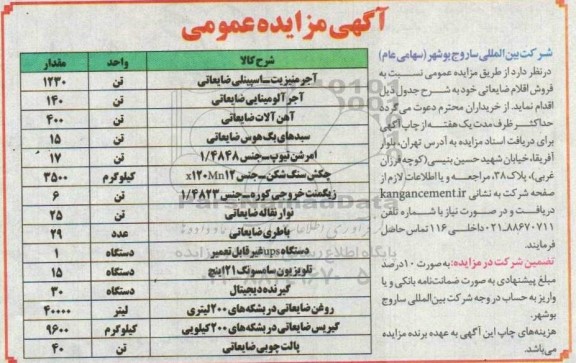 آگهی مزایده عمومی
شرکت بین المللی ساروج بوشهر (سهامی عام)
در نظر دارد از طریق مزایده عمومی نسبت به
فروش اقلام ضایعاتی خود به شرح جدول ذیل
اقدام نماید. از خریداران محترم دعوت می گردد
حداکثر ظرف مدت یک هفته از چاپ آگهی
برای دریافت اسناد مزایده به آدرس تهران، بلوار
آفریقا، خیابان شهید حسین بنیسی (کوچه فرزان
غربی)، پلاک ۳۸، مراجعه و یا اطلاعات لازم از
صفحه شرکت به نشانی kangancement.ir
دریافت و در صورت نیاز با شماره تلفن
۰۲۱-۸۸۶۷۰۷۱۱ داخلی ۱۱۶ تماس حاصل
فرمایند.
تضمین شرکت در مزایده: به صورت ۱۰ درصد
مبلغ پیشنهادی به صورت ضمانت نامه بانکی و یا
واریز به حساب در وجه شرکت بین المللی ساروج
بوشهر.
هزینه های چاپ این آگهی به عهده برنده مزایده
می باشد.
شرح کالا واحد مقدار
آجر منیزیت ساسپینلی ضایعاتی تن ۱۲۳۰
آجر آلومینایی ضایعاتی تن ۱۴۰
آهن آلات ضایعاتی تن ۴۰۰
سبدهای بگ هوس ضایعاتی تن ۱۵
امرشن تیوپ - جنس ۱/۴۸۴۸ تن ۱۷
چکش سنگ شکن - جنس x۱۲۰Mn۱۲ کیلوگرم ۳۵۰۰
زیگمنت خروجی کوره - جنس ۱/۴۸۲۳ تن ۶
نوار نقاله ضایعاتی تن ۲۵
باطری ضایعاتی عدد ۲۹
دستگاه ups غیر قابل تعمیر دستگاه ۱
تلویزیون سامسونگ ۲۱ اینچ دستگاه ۱۵
گیرنده دیجیتال دستگاه ۳۰
روغن ضایعاتی در بشکه های ۲۰۰ لیتری لیتر ۴۰۰۰۰
گیریس ضایعاتی در بشکه های ۲۰۰ کیلویی کیلوگرم ۹۶۰۰
پالت چوبی ضایعاتی تن ۴۰